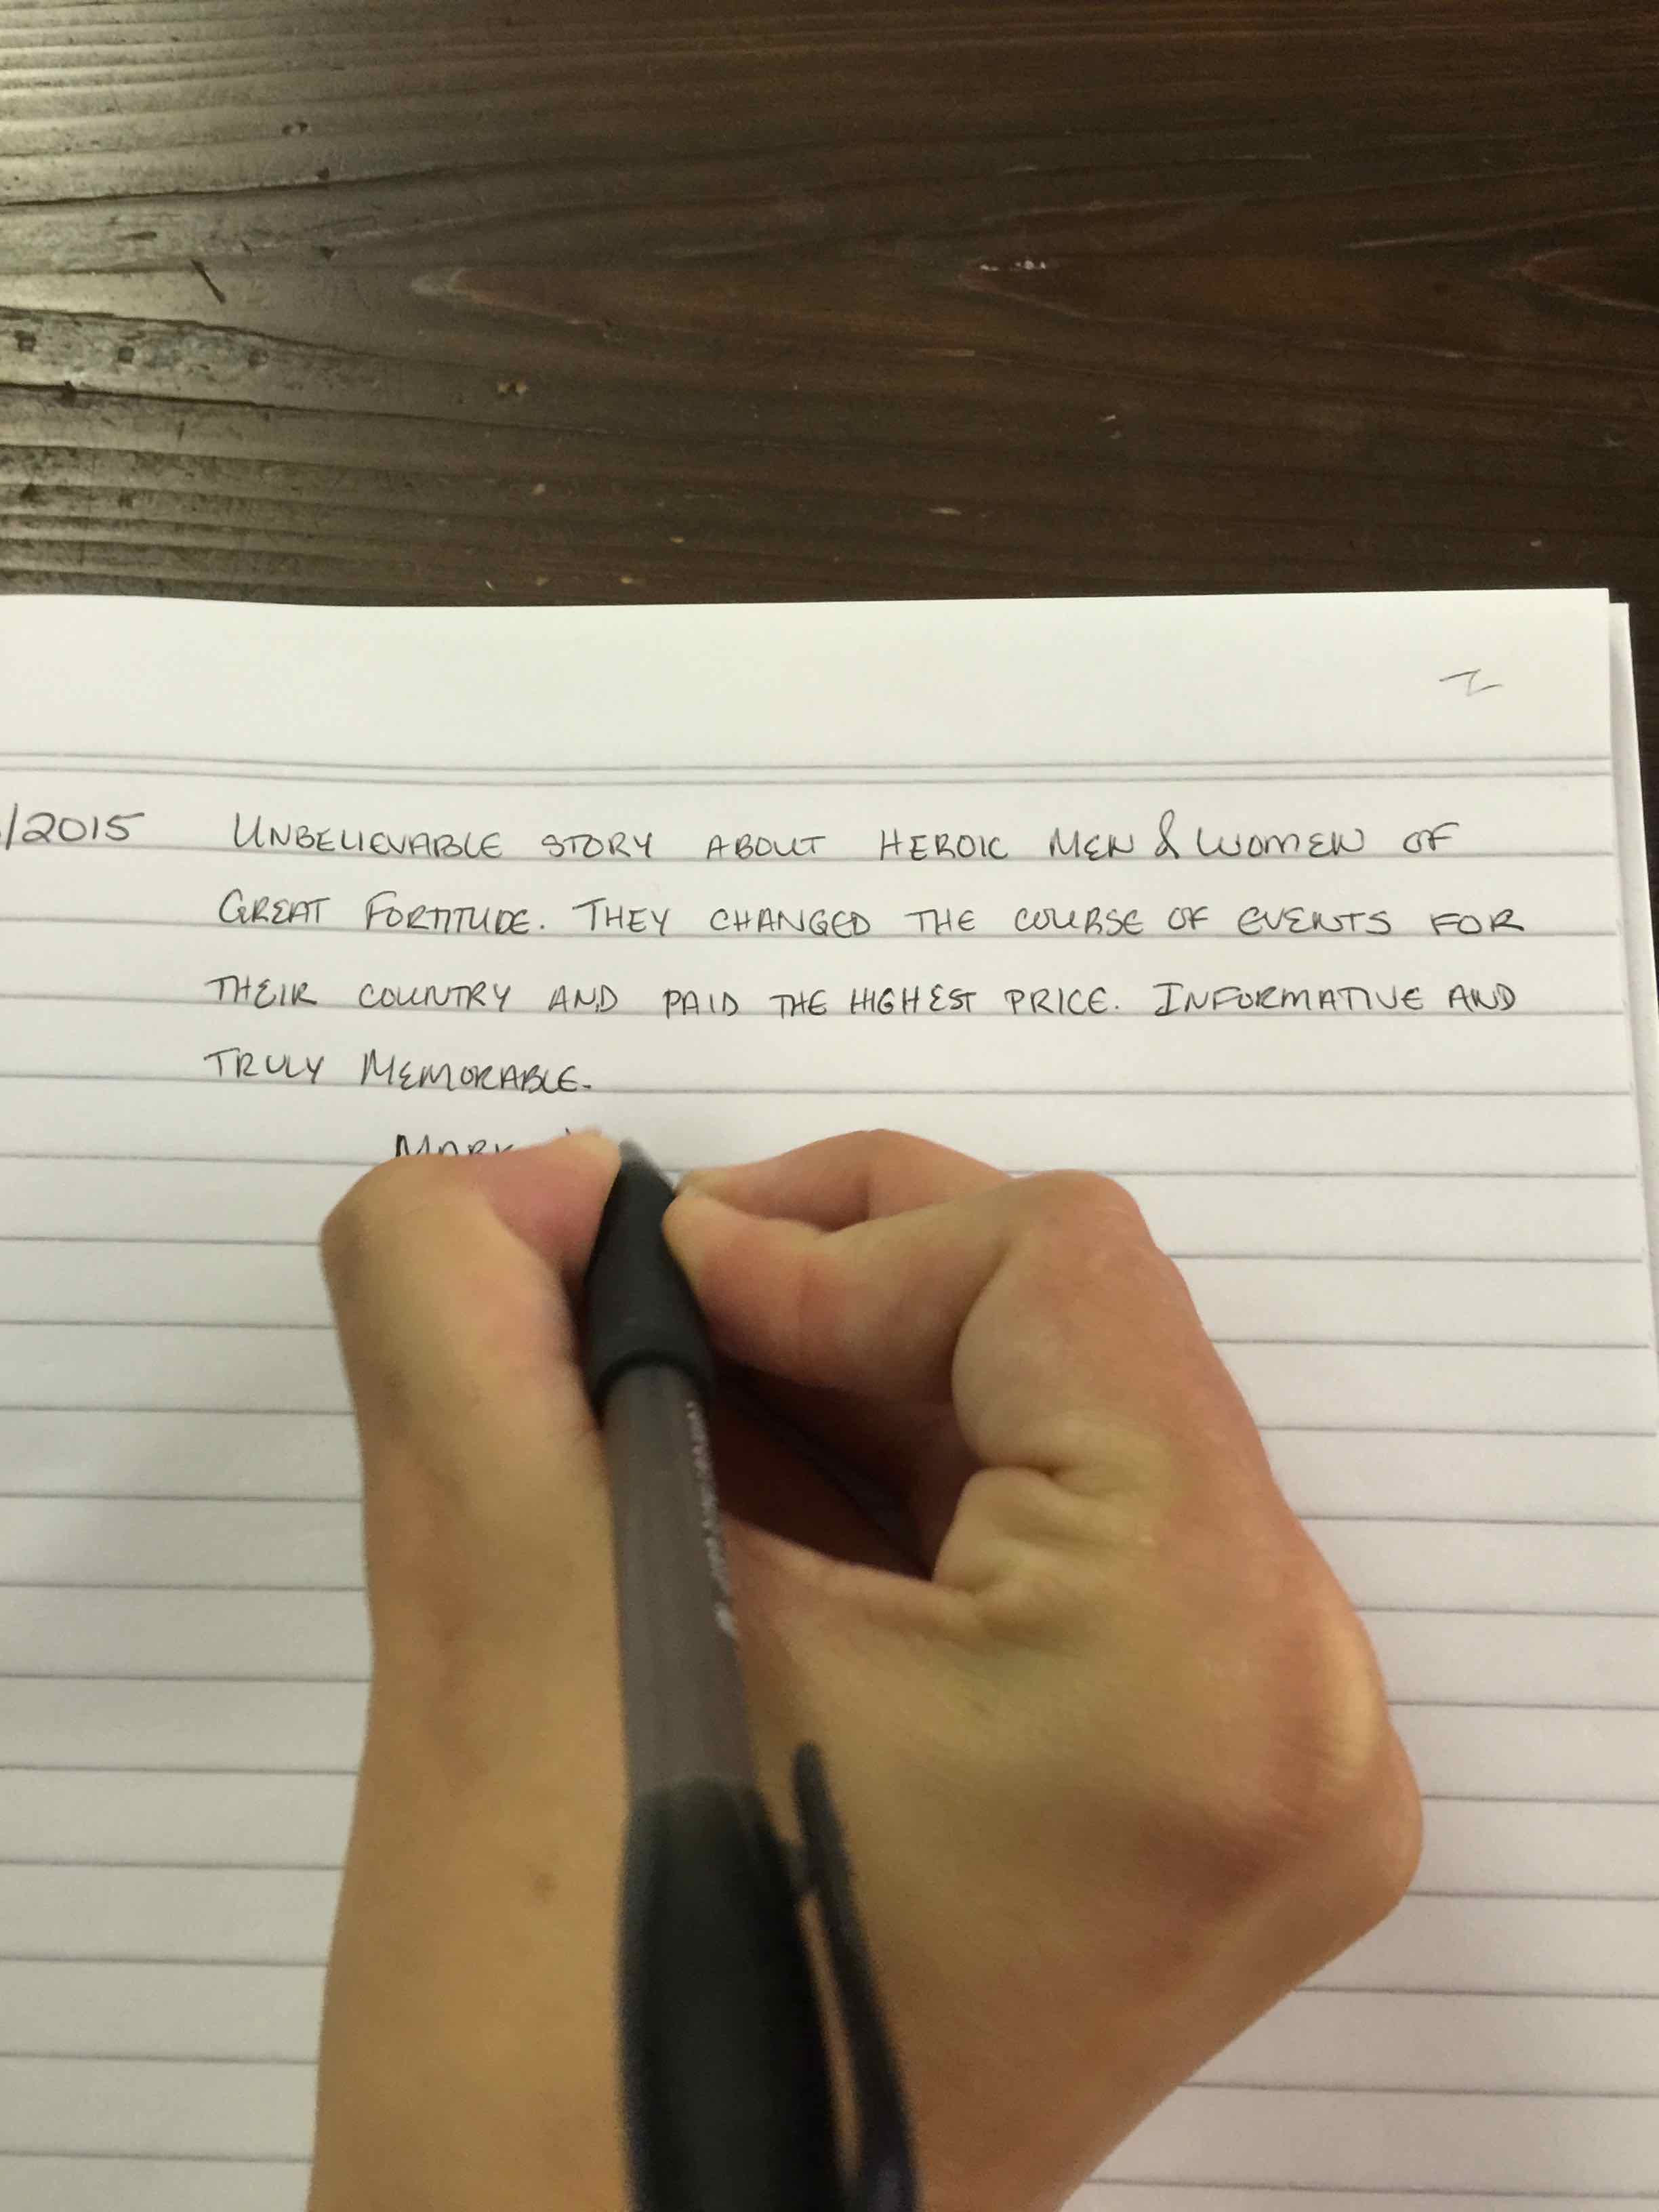 /2015 UNBELIEVABLE STORY ABOUT HEROIC MEN & WOMEN OF
GREAT FORTITUDE. THEY CHANGED THE COURSE OF EVENTS FOR
THEIR COUNTRY AND PAID THE HIGHEST PRICE. INFORMATIVE AND
TRULY MEMORABLE.
MARK